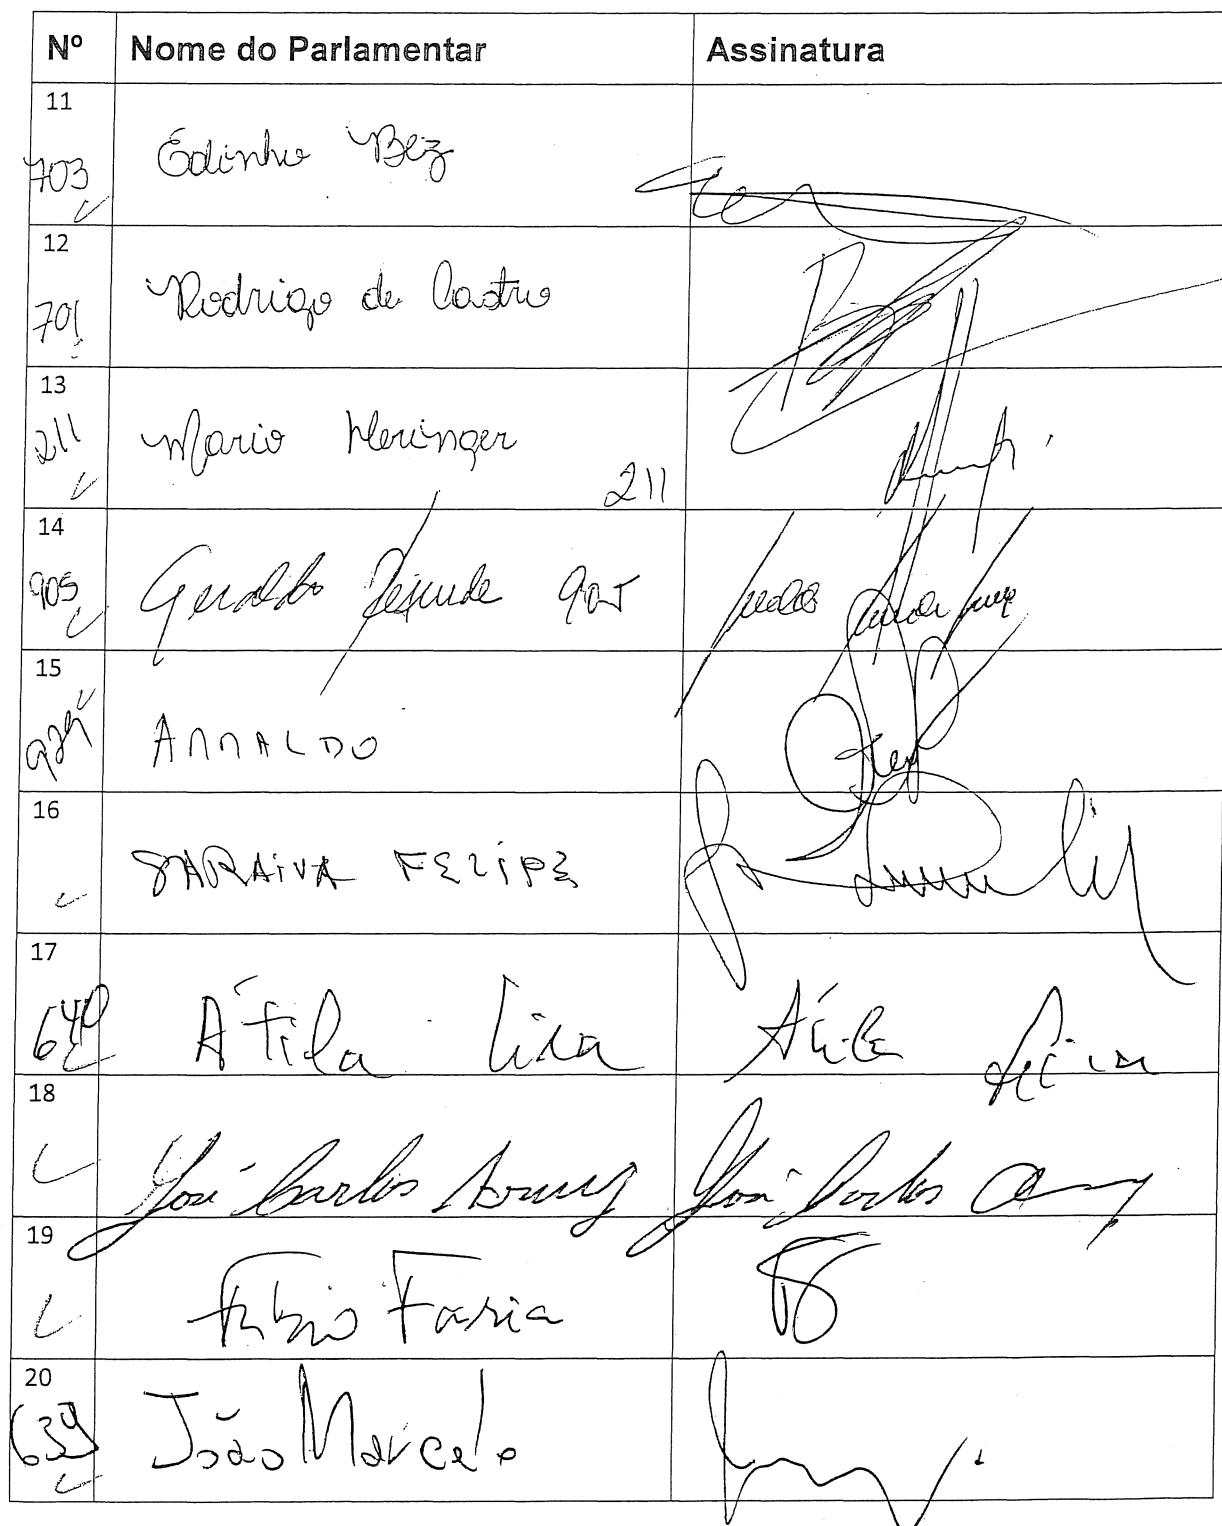 Nº Nome do Parlamentar Assinatura
11
703 Edinho Bez
12
701 Rodrigo de Castro
13
211 Mario Heringer 211
14
905 Geraldo Resende 905
15
929 ARNALDO
16
SARAIVA FELIPE
17
640 Átila Lira Átila Lira
18
José Carlos Araujo José Carlos
19
Fábio Faria
20
639 João Marcelo